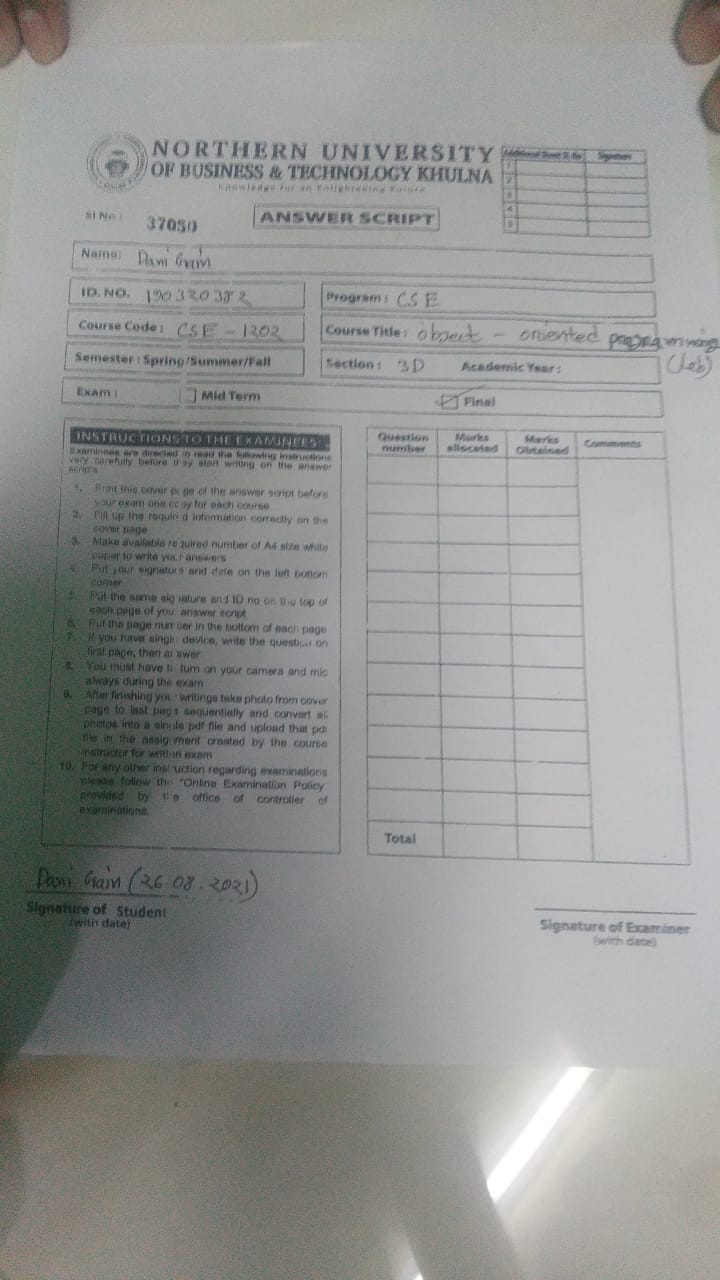 NORTHERN UNIVERSITY
OF BUSINESS & TECHNOLOGY KHULNA
Knowledge for an Enlightening Future
Additional Sheet Sl. No Signature
1
2
3
4
5
Sl No : 37050
ANSWER SCRIPT
Name: Dani Gain
ID. NO. 190320382
Program : CSE
Course Code : CSE - 1202
Course Title : object - oriented programming (Lab)
Semester : Spring/Summer/Fall
Section : 3D Academic Year :
Exam : Mid Term Final
INSTRUCTIONS TO THE EXAMINEES:
Examinees are directed to read the following instructions
very carefully before they start writing on the answer
scripts.
1. Print this cover page of the answer script before
your exam one copy for each course
2. Fill up the required information correctly on the
cover page
3. Make available required number of A4 size white
paper to write your answers
4. Put your signature and date on the left bottom
corner
5. Put the same signature and ID no on the top of
each page of your answer script
6. Put the page number in the bottom of each page
7. If you have single device, write the question on
first page, then answer
8. You must have to turn on your camera and mic
always during the exam
9. After finishing your writings take photo from cover
page to last page sequentially and convert all
photos into a single pdf file and upload that pdf
file in the assignment created by the course
instructor for written exam
10. For any other instruction regarding examinations
please follow the "Online Examination Policy
provided by the office of controller of
examinations.
Question number Marks allocated Marks Obtained Comments
Total
Dani Gain (26.08.2021)
Signature of Student
(with date)
Signature of Examiner
(with date)